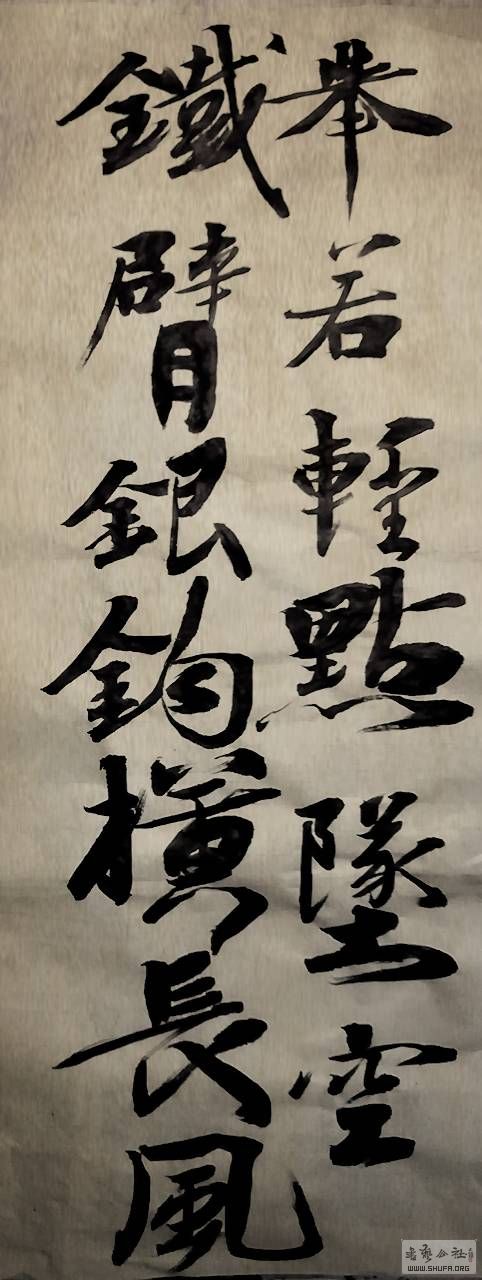 舉若輕點墜空
鐵臂銀鉤橫長風
書藝公社
WWW.SHUFA.ORG